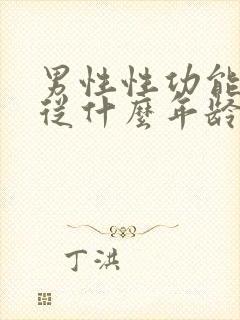 男性性功能
從什麼年齡
丁洪